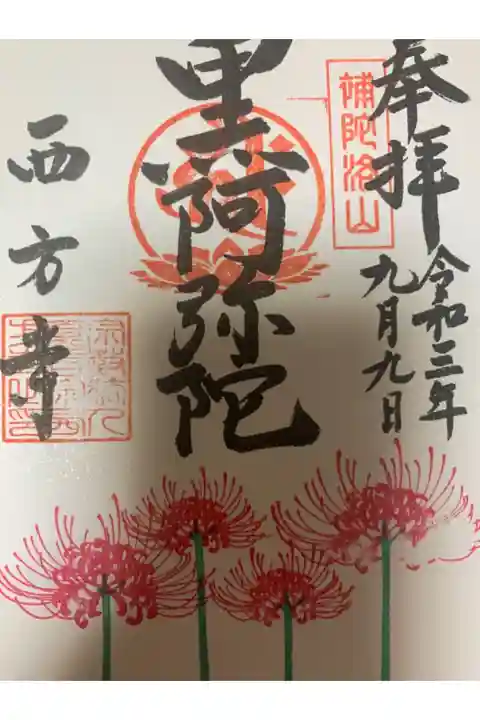 奉拝
補陀洛山
令和三年
九月九日
黒阿弥陀
西方寺